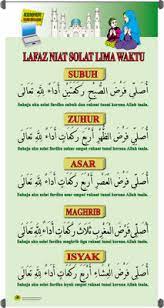 LAFAZ NIAT SOLAT LIMA WAKTU
SUBUH
أُصَلِّى فَرْضَ الصُّبْحِ رَكْعَتَيْنِ أَدَاءً لِلَّهِ تَعَالَى
Sahaja aku solat fardhu subuh dua rakaat tunai kerana Allah taala.
ZUHUR
أُصَلِّى فَرْضَ الظُّهْرِ أَرْبَعَ رَكَعَاتٍ أَدَاءً لِلَّهِ تَعَالَى
Sahaja aku solat fardhu zuhur empat rakaat tunai kerana Allah taala.
ASAR
أُصَلِّى فَرْضَ الْعَصْرِ أَرْبَعَ رَكَعَاتٍ أَدَاءً لِلَّهِ تَعَالَى
Sahaja aku solat fardhu asar empat rakaat tunai kerana Allah taala.
MAGHRIB
أُصَلِّى فَرْضَ الْمَغْرِبِ ثَلَاثَ رَكَعَاتٍ أَدَاءً لِلَّهِ تَعَالَى
Sahaja aku solat fardhu maghrib tiga rakaat tunai kerana Allah taala.
ISYAK
أُصَلِّى فَرْضَ الْعِشَاءِ أَرْبَعَ رَكَعَاتٍ أَدَاءً لِلَّهِ تَعَالَى
Sahaja aku solat fardhu isyak empat rakaat tunai kerana Allah taala.